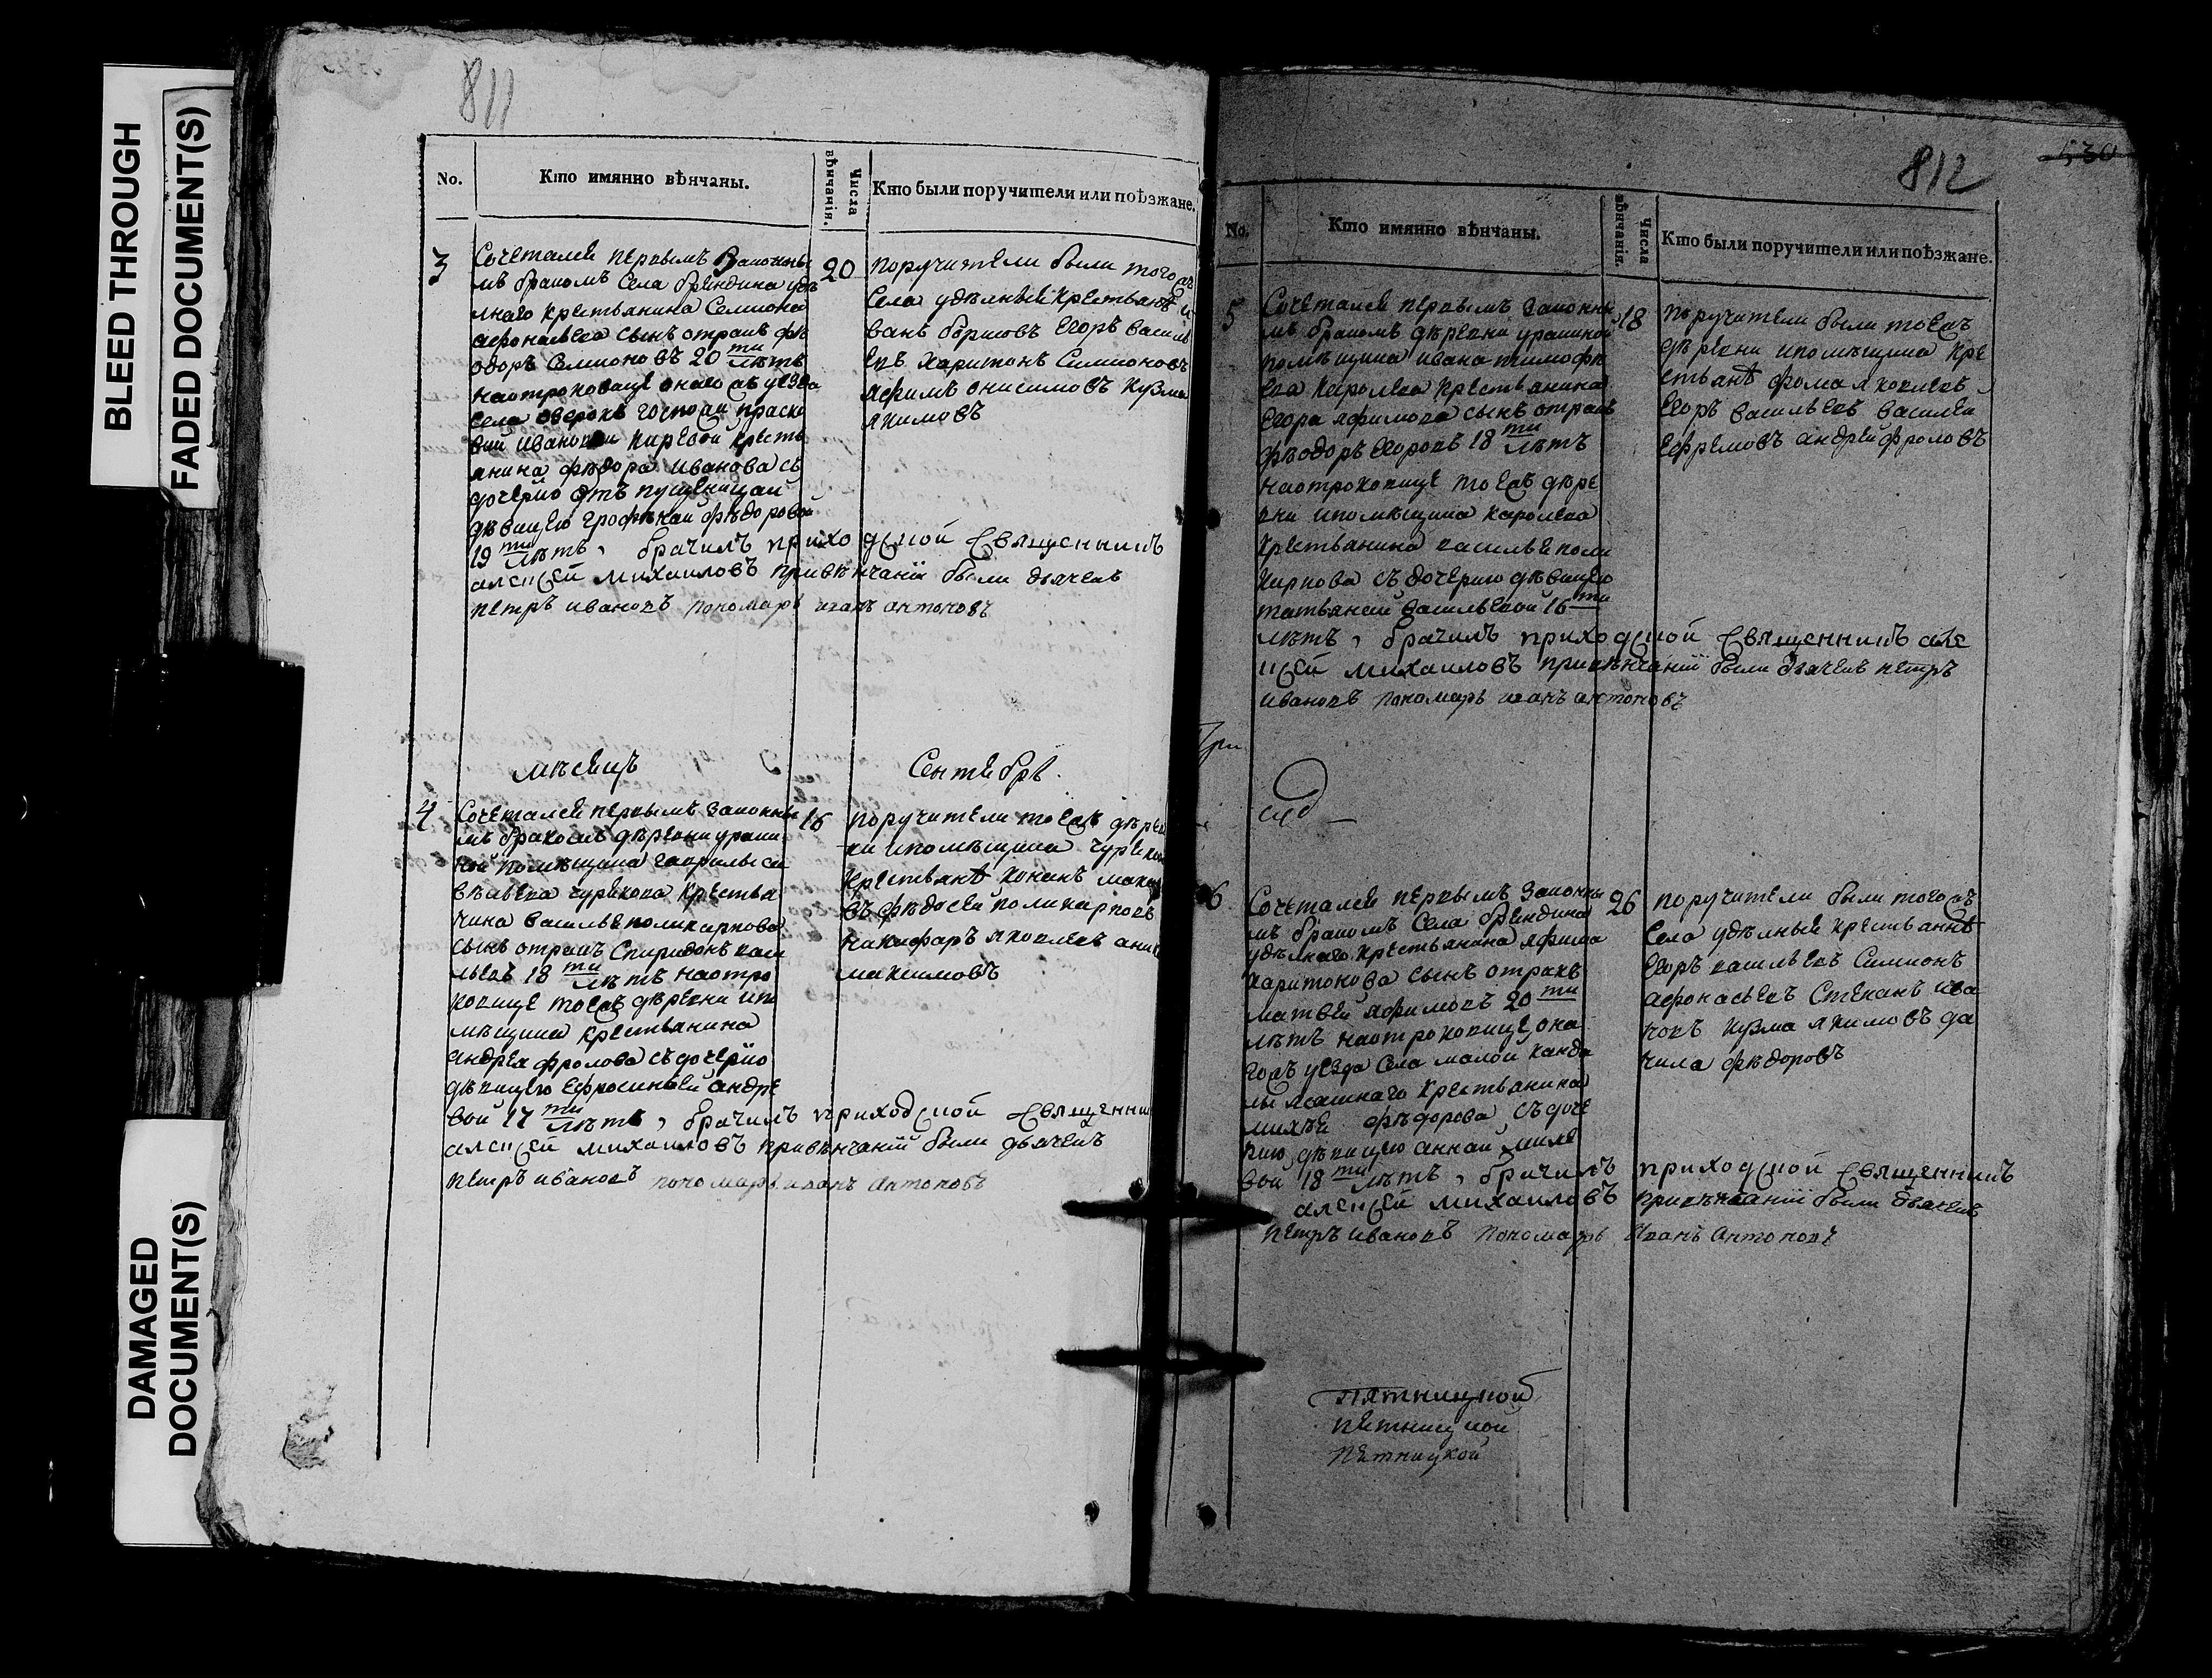 BLEED THROUGH
FADED DOCUMENT(S)
DAMAGED
DOCUMENT(S)
811
No.
Кто имянно вѣнчаны.
Числа вѣнчанія.
Кто были поручители или поѣзжане.
3
Сочетался первымъ Законны
мъ бракомъ Села брѣндина удѣ
лнаго крестьянина Семиона
афонасьева сынъ отракъ фѣ
одоръ Семионовъ 20 ти лѣтъ
наотроковице онаго жъ уезда
Села госпожи праско
вии ивановои киревои кресть
янина фѣдора иванова съ
дочерию
дѣвицею фѣдоровои
19 ти лѣтъ, брачилъ приходской Священникъ
алексей михаиловъ привѣнчании были дьячекъ
петръ ивановъ пономарь иванъ антоновъ
20
поручители были того жъ
Села удѣлные крестьянѣ и
ванъ борисовъ Егоръ васил
евъ харитонъ Симионовъ
афимъ онисимовъ кузма
якимовъ
мѣсецъ Сентебрь
4
Сочетался первымъ законны
мъ бракомъ дѣревни ураки
ной помѣщика гаврилы са
вѣльева чурикова крестья
нина василья поликарпова
сынъ отракъ Спиридонъ васи
льевъ 18 ти лѣтъ наотро
ковице тоежъ дѣревни ипо
мѣщика крестьянина
андрея фролова съ дочерию
дѣвицею Ефросиньей андре
вои 17 ти лѣтъ, брачилъ приходской Священни
алексей михаиловъ привѣнчании были дьячекъ
петръ ивановъ пономарь иванъ антоновъ
16
поручители тоежъ дѣрев
ни ипомѣщика чурикова
крестьянѣ конанъ мака
въ фѣдосеи поликарповъ
никифаръ яковлевъ
макимовъ
812
530
No.
Кто имянно вѣнчаны.
Числа вѣнчанія.
Кто были поручители или поѣзжане.
5
Сочетался первымъ законны
мъ бракомъ дѣревни уракиной
помѣщика ивана тимофѣ
ева каролева крестьянина
Егора афимова сынъ отракъ
фѣодоръ Егоровъ 18 ти лѣтъ
наотроковице тоежъ дѣре
вни ипомѣщика каролева
крестьянина василья поли
карпова съ дочерию дѣвицею
татьяной васильевой 16 ти
лѣтъ, брачилъ приходской Священникъ але
ксей михаиловъ привѣнчании были дьячекъ петръ
ивановъ пономарь иванъ антоновъ
18
поручители были тоежъ
дѣревни ипомѣщика кре
стьянѣ фома яковлевъ
Егоръ васильевъ василеи
Ефремовъ андрей фроловъ
6
Сочетался первымъ законны
мъ бракомъ Села брѣндина
удѣлнаго крестьянина афима
харитонова сынъ отракъ
матвей афимовъ 20 ти
лѣтъ наотроковице она
гожъ уезда Села малои канда
лы ясашнаго крестьянина
михѣя фѣдорова съ доче
рию дѣвицею аннаи михе
вои 18 ти лѣтъ, брачилъ приходской Священникъ
алексей михаиловъ привѣнчании были дьячекъ
петръ ивановъ пономарь иванъ антоновъ
26
поручители были того жъ
Села удѣлные крестьянѣ
Егоръ васильевъ Симионъ
афонасьевъ Степанъ ива
новъ кузма якимовъ да
нила фѣдоровъ
пятницкой
пѣтницкои
пѣтницкой